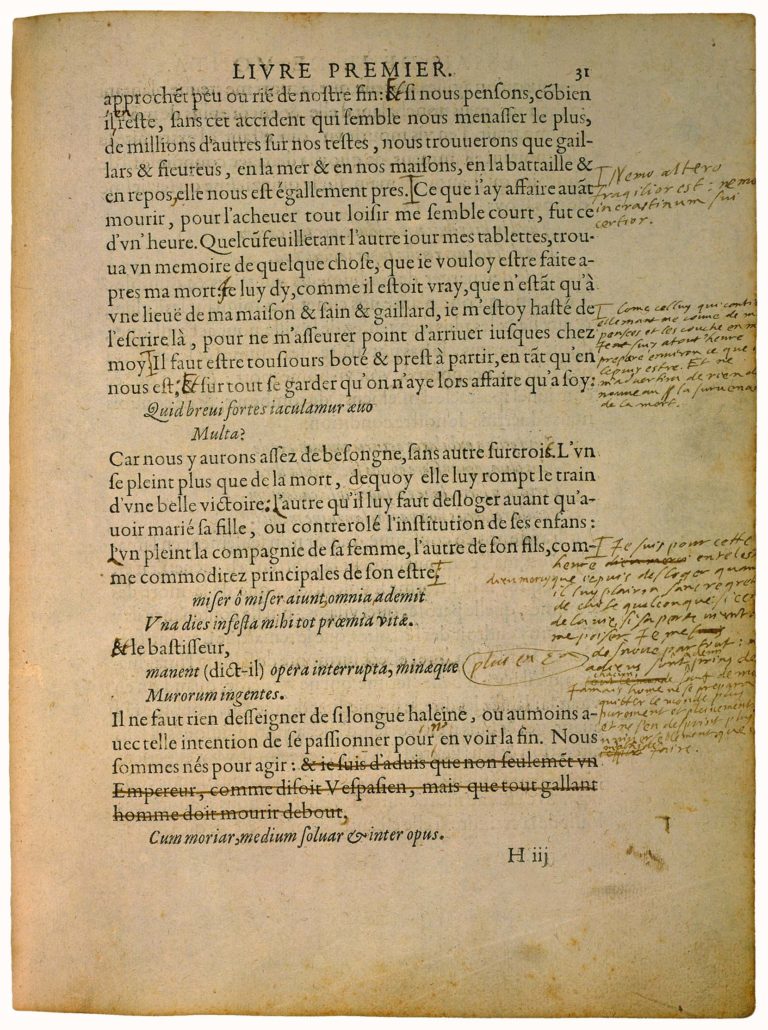 LIVRE PREMIER. 31
approchēt peu ou riē de nostre fin: & si nous pensons, cōbien
il en reste, sans cet accident qui semble nous menasser le plus,
de millions d'autres sur nos testes, nous trouuerons que gail-
lars & fieureus, en la mer & en nos maisons, en la battaille &
en repos, elle nous est égallement pres. Ce que i'ay affaire auāt
mourir, pour l'acheuer tout loisir me semble court, fut ce
d'vn' heure. Quelcū feuilletant l'autre iour mes tablettes, trou-
ua vn memoire de quelque chose, que ie vouloy estre faite a-
pres ma mort: Je luy dy, comme il estoit vray, que n'estāt qu'à
vne lieuë de ma maison & sain & gaillard, ie m'estoy hasté de
l'escrire là, pour ne m'asseurer point d'arriuer iusques chez
moy. Il faut estre tousiours boté & prest à partir, en tāt qu'en
nous est, & sur tout se garder qu'on n'aye lors affaire qu'a soy:
Quid breui fortes iaculamur æuo
Multa?
Car nous y aurons assez de besongne, sans autre surcroit. L'vn
se pleint plus que de la mort, dequoy elle luy rompt le train
d'vne belle victoire: l'autre qu'il luy faut desloger auant qu'a-
uoir marié sa fille, ou contrerolé l'institution de ses enfans:
L'vn pleint la compagnie de sa femme, l'autre de son fils, com-
me commoditez principales de son estre.
miser ô miser aiunt, omnia ademit
Vna dies infesta mihi tot præmia vitæ.
& le bastisseur,
manent (dict-il) opera interrupta, minæque
Murorum ingentes.
Il ne faut rien desseigner de si longue haleine, ou aumoins a-
uec telle intention de se passionner pour n'en voir la fin. Nous
sommes nés pour agir: & ie suis d'aduis que non seulemēt vn
Empereur, comme disoit Vespasien, mais que tout gallant
homme doit mourir debout,
Cum moriar, medium soluar & inter opus.
H iij
Nemo altero
fragilior est: nemo
in crastinum sui
certior.
Come celluy qui conti
ellemant me couue de m
pensees et les couche en m
suy a tout' heure
prepare environ ce que
le puis estre. Et ne
m'advertira de rien de
nouveau la survena
de la mort.
Je suis pour cette
heure en tel est
dieu mercy que je puis desloger quan
il luy plaira sans regret
de chose quelconque, si ce
de la vie, si sa perte vient
me poiser. Je me
des noue par tout: m
adieus sont
de
Jamais home ne se prepara
quitter le monde plus
purement et pleinement
et ne s'en desprint plus
universellement que
faire.